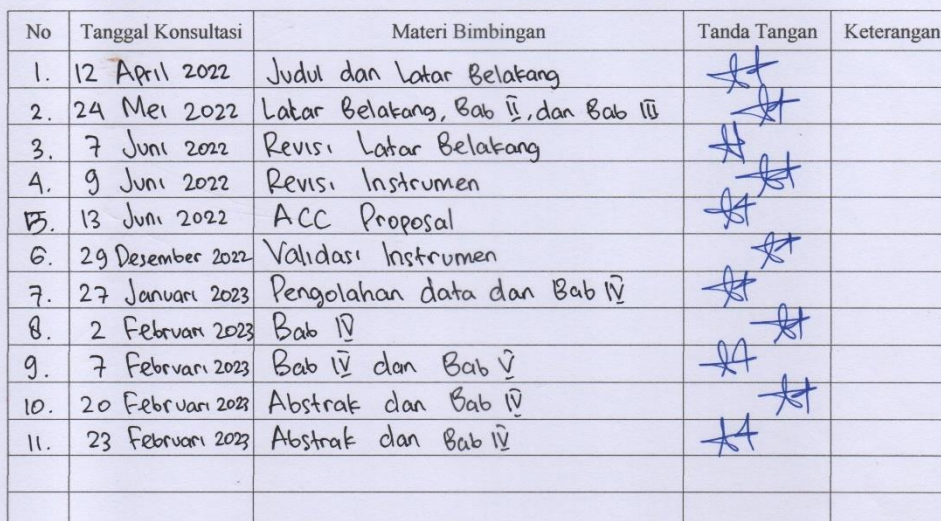 No Tanggal Konsultasi Materi Bimbingan Tanda Tangan Keterangan
1. 12 April 2022 Judul dan Latar Belakang
2. 24 Mei 2022 Latar Belakang, Bab II, dan Bab III
3. 7 Juni 2022 Revisi Latar Belakang
4. 9 Juni 2022 Revisi Instrumen
5. 13 Juni 2022 ACC Proposal
6. 29 Desember 2022 Validasi Instrumen
7. 27 Januari 2023 Pengolahan data dan Bab IV
8. 2 Februari 2023 Bab IV
9. 7 Februari 2023 Bab IV dan Bab V
10. 20 Februari 2023 Abstrak dan Bab IV
11. 23 Februari 2023 Abstrak dan Bab IV